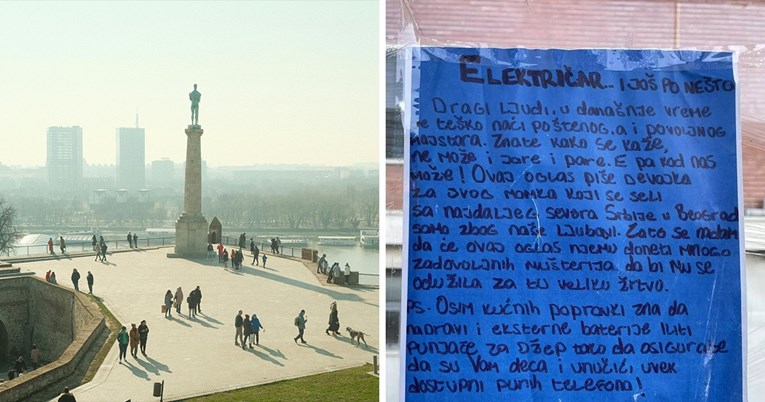 ELEKTRIČAR.. I JOŠ PO NEŠTO
DRAGI LJUDI, U DANAŠNJE VREME
JE TEŠKO NAĆI POŠTENOG, A I POVOLJNOG
MAJSTORA. ZNATE KAKO SE KAŽE,
NE MOŽE I JARE I PARE. E PA KOD NAS
MOŽE! OVAJ OGLAS PIŠE DEVOJKA
ZA SVOG MOMKA KOJI SE SELI
SA NAJDALJEG SEVERA SRBIJE U BEOGRAD
SAMO ZBOG NAŠE LJUBAVI. ZATO SE NADAM
DA ĆE OVAJ OGLAS NJEMU DONETI MNOGO
ZADOVOLJNIH MUŠTERIJA DA BI MU SE
ODUŽILA ZA TU VELIKU ŽRTVU.
PS. OSIM KUĆNIH POPRAVKI ZNA DA
NAPRAVI I EKSTERNE BATERIJE ILITI
PUNJAČE ZA DŽEP TAKO DA OSIGURATE
DA SU VAM DECA I UNUČIĆI UVEK
DOSTUPNI PUNIH TELEFONA!